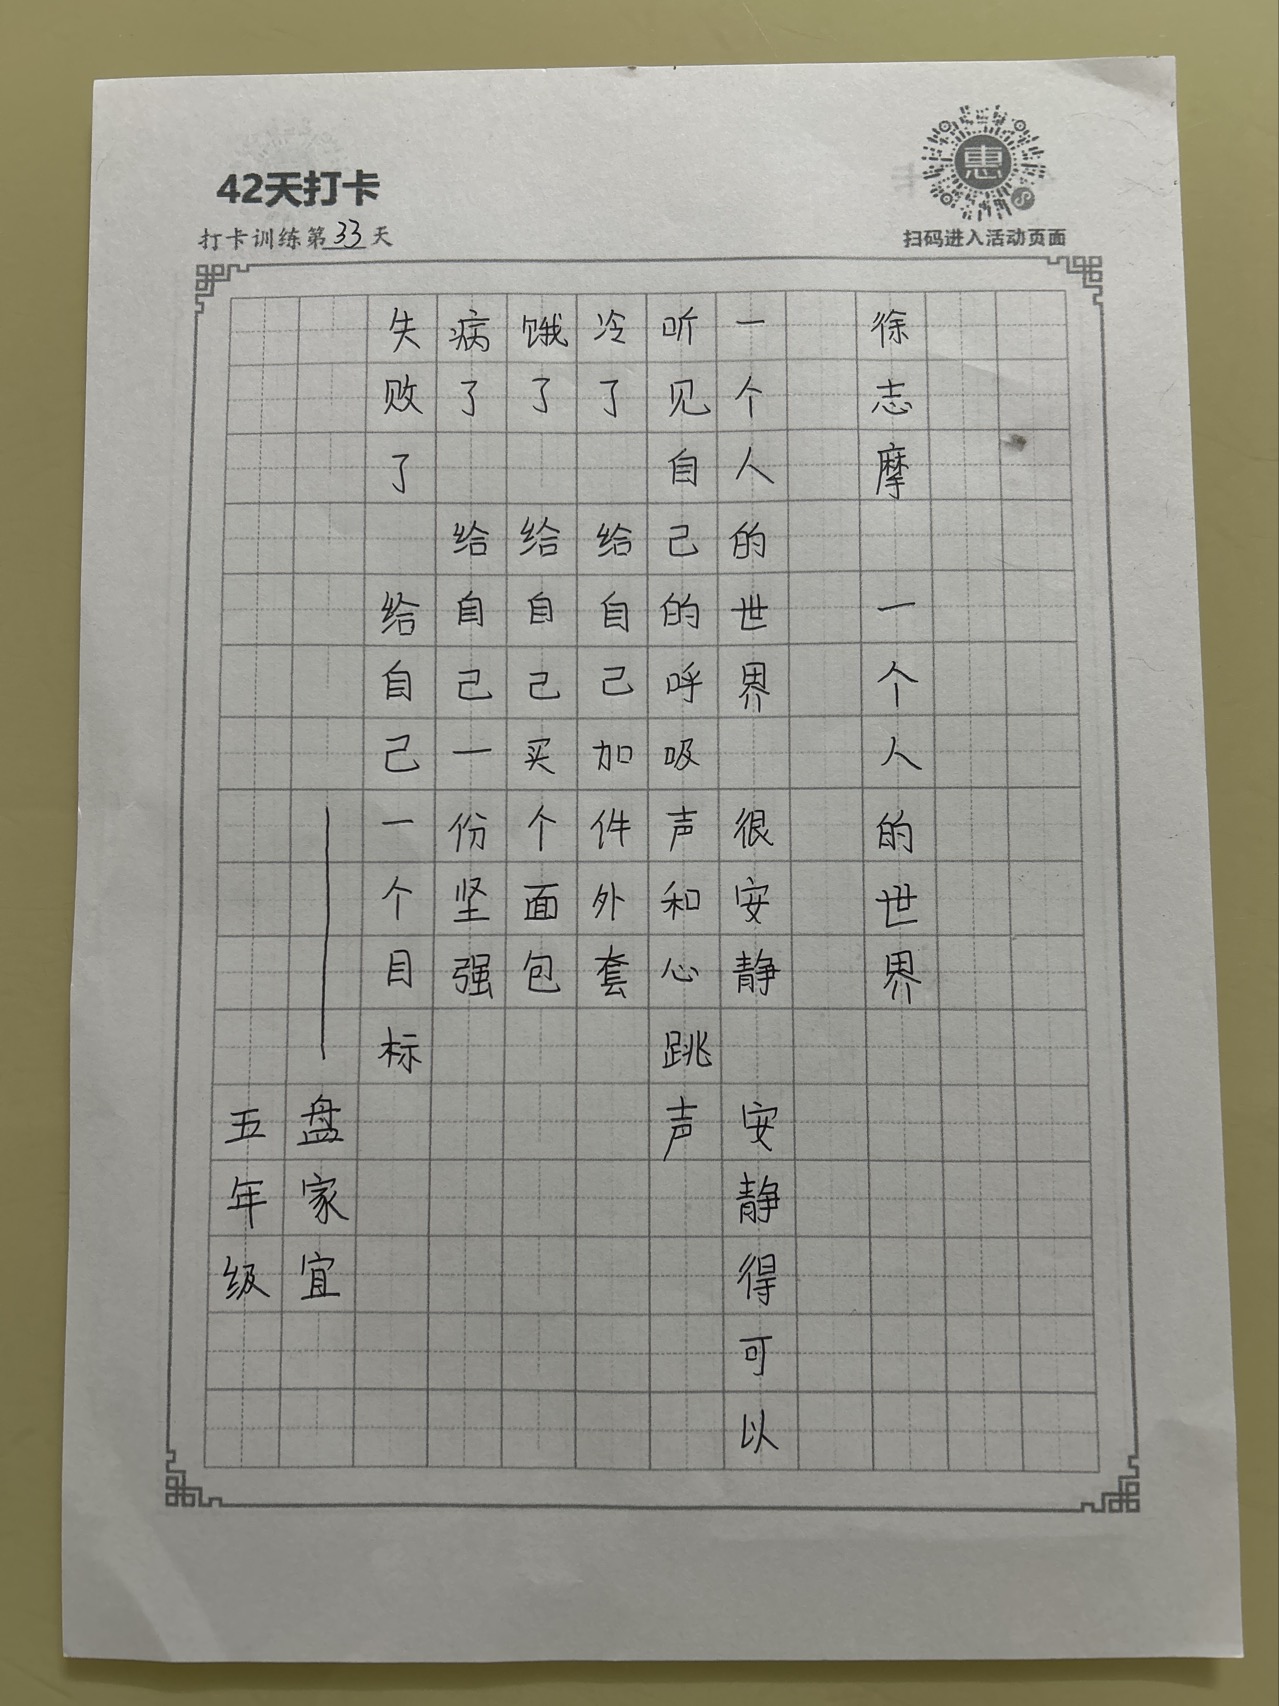 42天打卡
打卡训练第33天
惠
扫码进入活动页面
徐志摩 一个人的世界
一个人的世界 很安静 安静得可以
听见自己的呼吸声和心跳声
冷了 给自己加件外套
饿了 给自己买个面包
病了 给自己一份坚强
失败了 给自己一个目标
——盘家宜
五年级